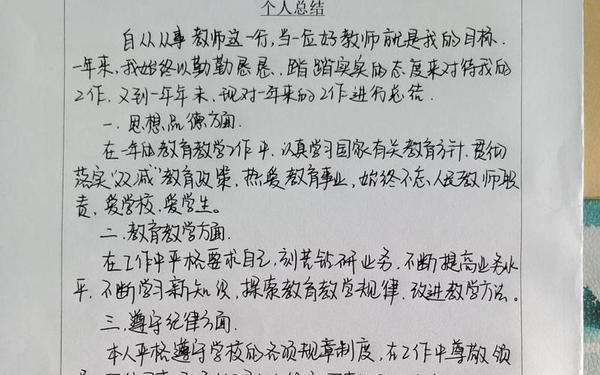 个人总结
自从从事教师这一行,当一位好教师就是我的目标.
一年来,我始终以勤勤恳恳,踏踏实实的态度来对待我的
工作.又到一年年末,现对一年来的工作进行总结.
一.思想品德方面.
在一年的教育教学工作中.认真学习国家有关教育方针.贯彻
落实"双减"教育政策,热爱教育事业,始终不忘人民教师职
责,爱学校,爱学生。
二.教育教学方面.
在工作中严格要求自己,刻苦钻研业务,不断提高业务水
平.不断学习新知识,探索教育教学规律.改进教学方法。
三.遵守纪律方面.
本人严格遵守学校的各项规章制度,在工作中尊敬领